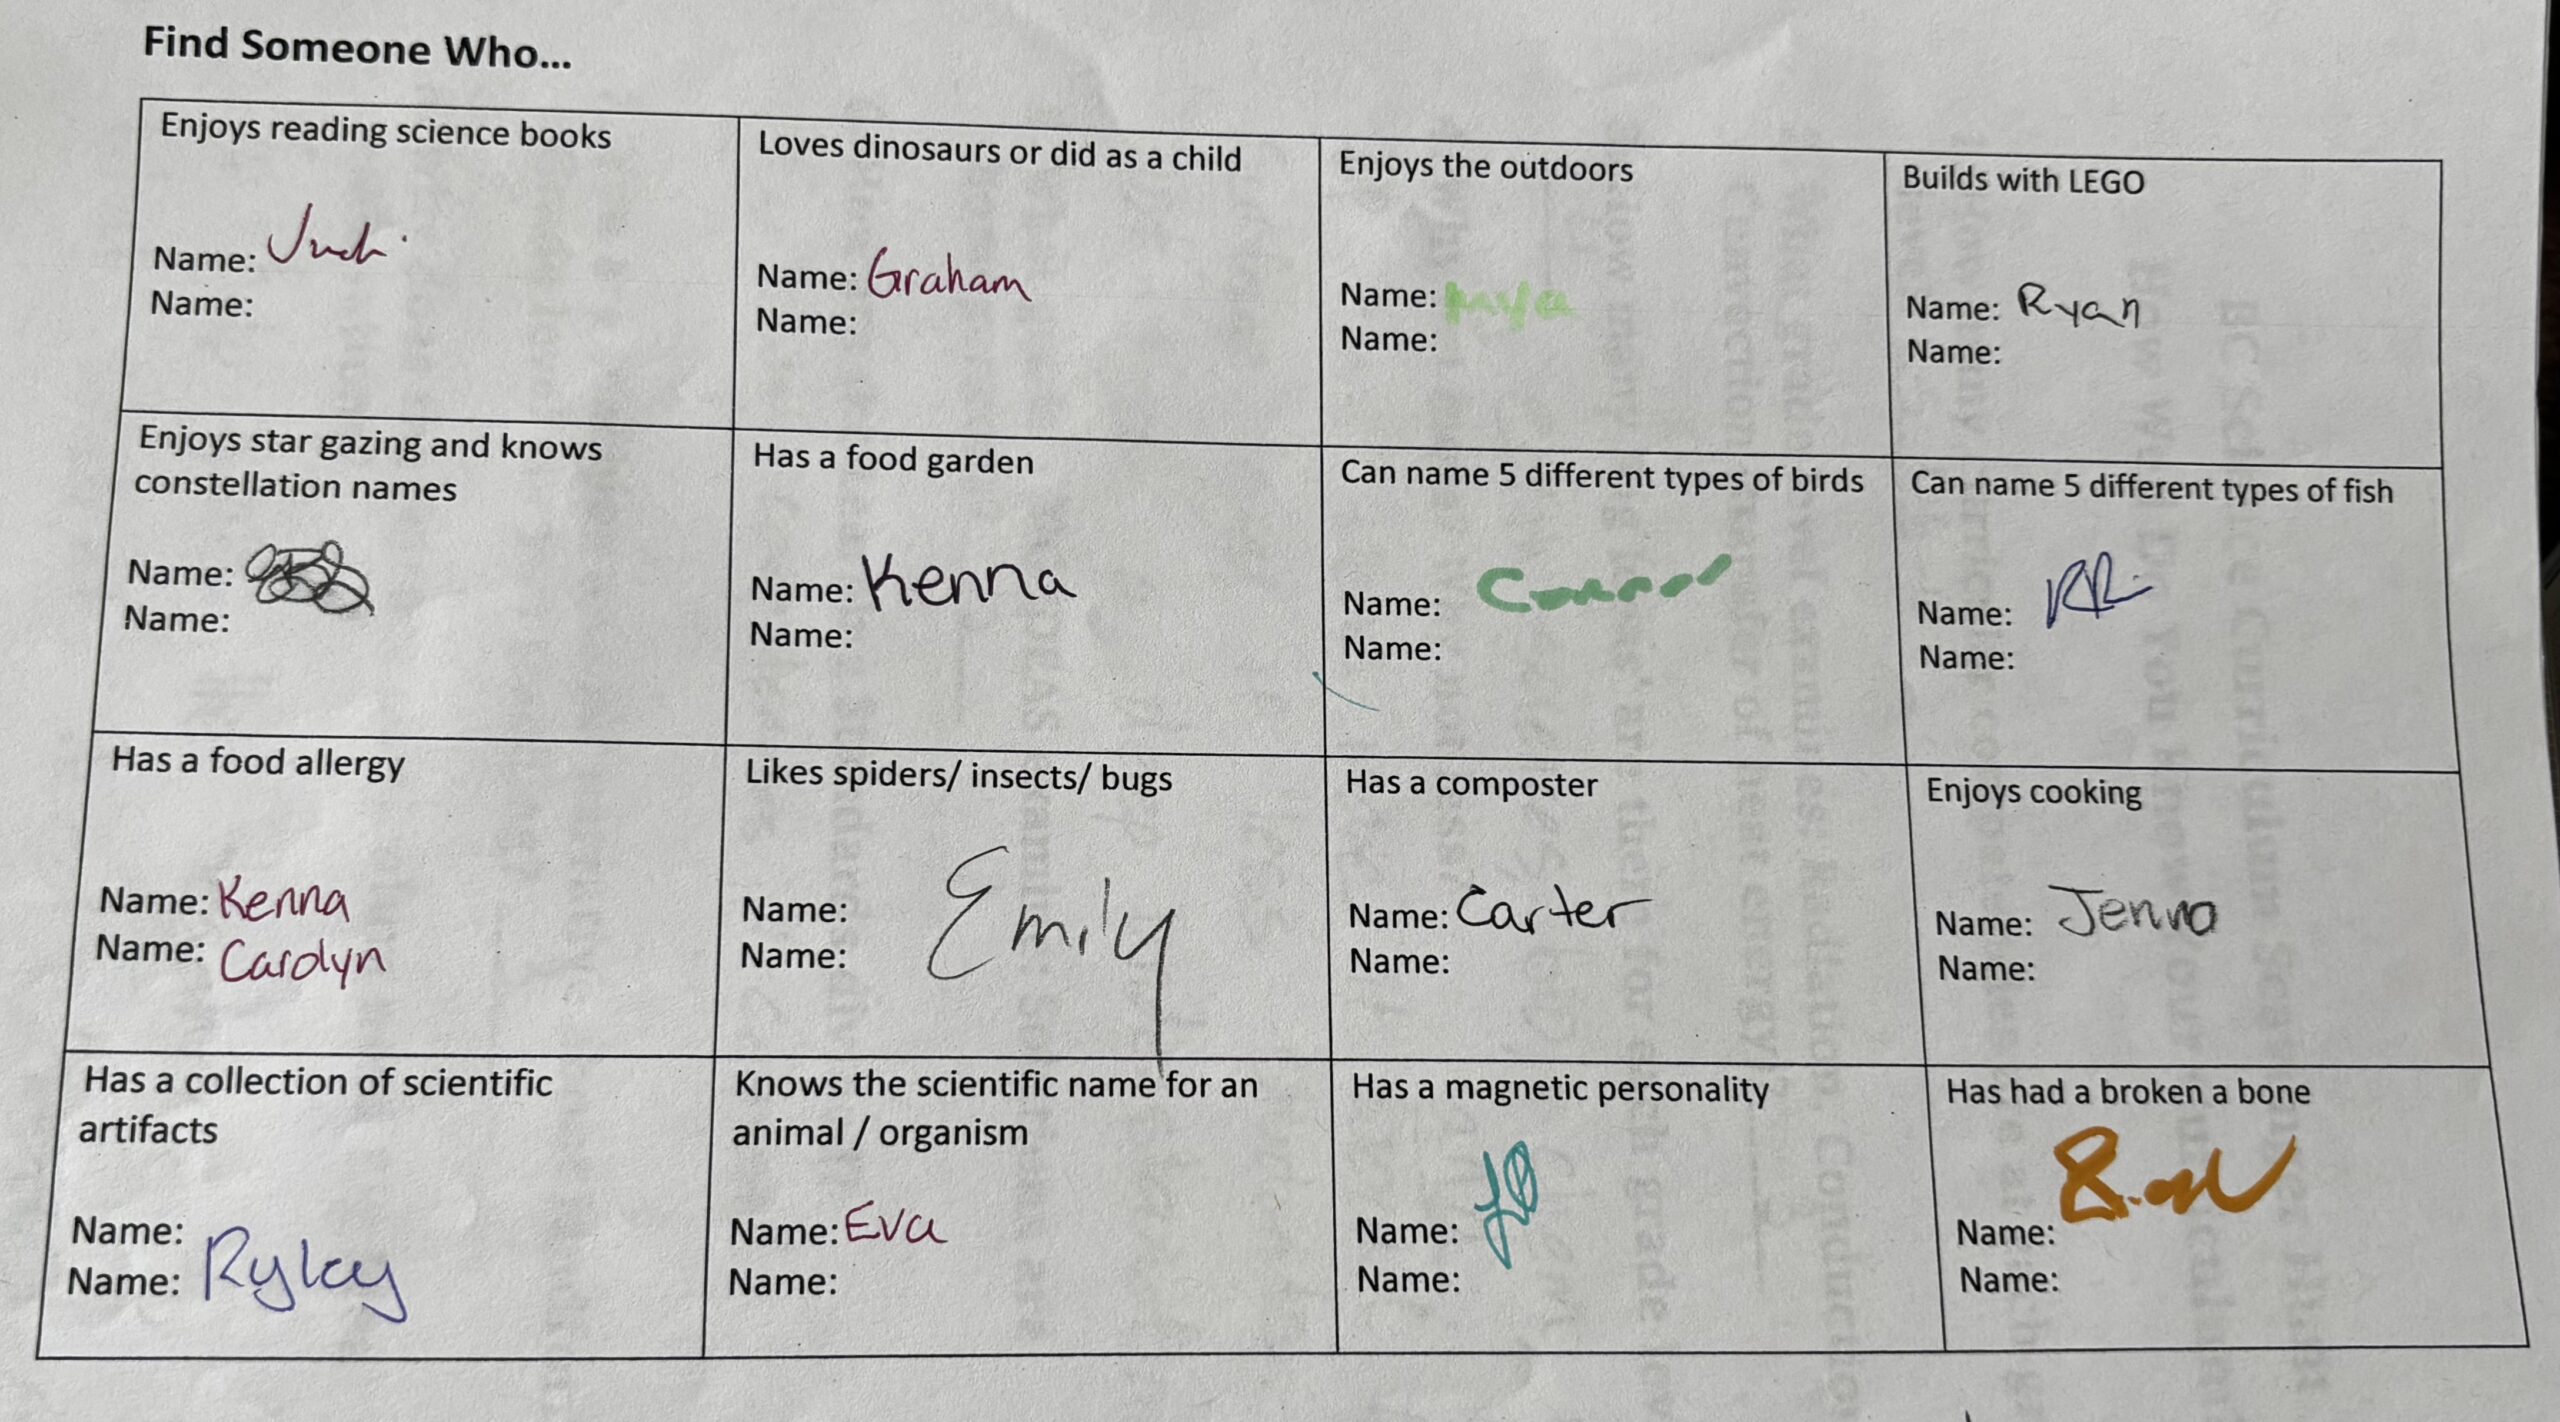 Find Someone Who...
Enjoys reading science books
Name:
Name:
Loves dinosaurs or did as a child
Name: Graham
Name:
Enjoys the outdoors
Name: Mya
Name:
Builds with LEGO
Name: Ryan
Name:
Enjoys star gazing and knows
constellation names
Name:
Name:
Has a food garden
Name: Kenna
Name:
Can name 5 different types of birds
Name: Connor
Name:
Can name 5 different types of fish
Name:
Name:
Has a food allergy
Name: Kenna
Name: Carolyn
Likes spiders/ insects/ bugs
Name: Emily
Name:
Has a composter
Name: Carter
Name:
Enjoys cooking
Name: Jenna
Name:
Has a collection of scientific
artifacts
Name:
Name: Ryley
Knows the scientific name for an
animal / organism
Name: Eva
Name:
Has a magnetic personality
Name:
Name:
Has had a broken a bone
Name:
Name: